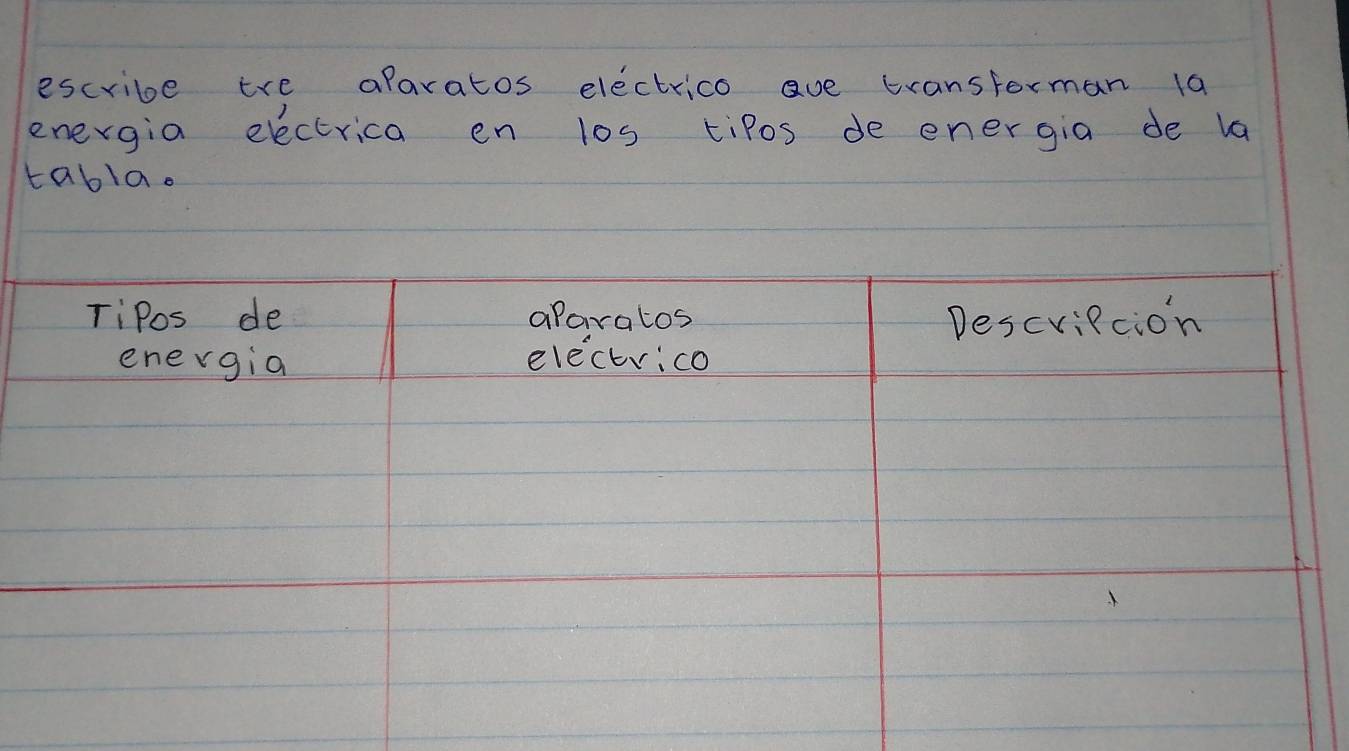 escribe tre aparatos eléctrico que transforman la
energia eléctrica en los tipos de energia de la
tabla.
Tipos de energia
aparatos eléctrico
Descripción